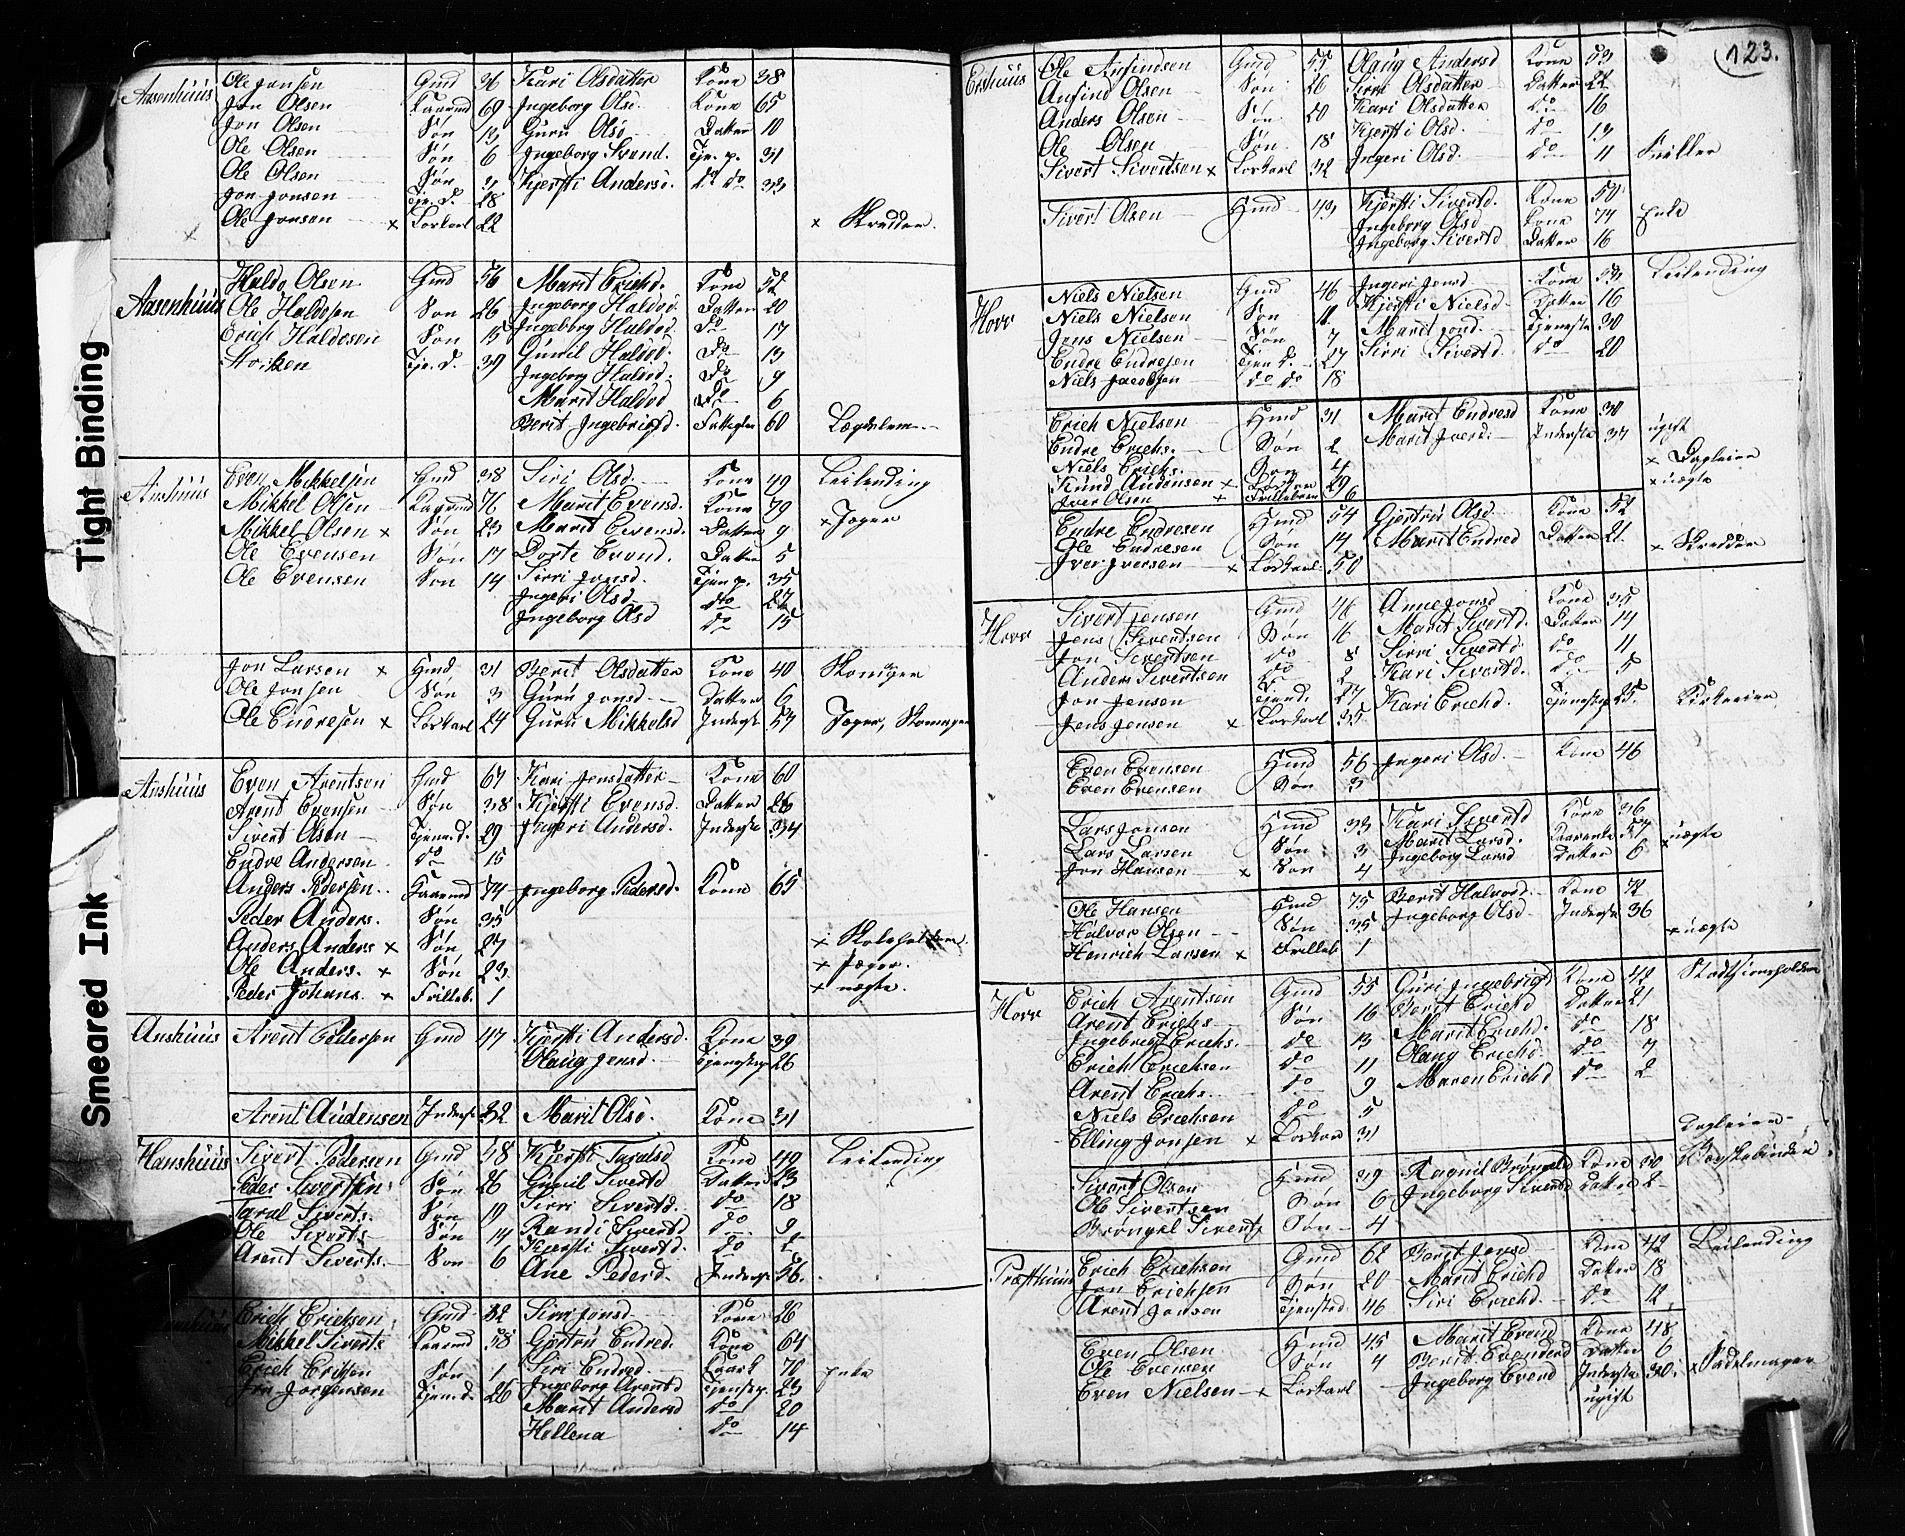 Tight Binding
Smeared Ink
123.
Aasenhuus Ole Jonsen Gmd 36 Kari Olsdatter Kone 38
Jon Olsen Kaarmd 69 Ingeborg Olsd. Kone 65
Jon Olsen Søn 13 Guru Olsd Datter 10
Ole Olsen Søn 6 Ingeborg Svend. Tje. p. 31
Ole Olsen Søn 3 Kjersti Andersd. do do 33
Jon Jonsen Tje. D. 28
Ole Jonsen × Loskarl 22 × Skrædder
Aasenhuus Haldo Olsen Gmd 56 Marit Erichd. Kone 52
Ole Haldosen Søn 26 Ingeborg Haldod. Datter 20
Erich Haldosen Søn 15 Ingeborg Haldod. Do 17
Tje. D. 39 Gunil Haldod. Do 13
Ingeborg Haldod. Do 9
Marit Haldod Do 6
Berit Ingebrigtd. 60 Lægdslem
Aushuus Even Mikkelsen Gmd 38 Siri Olsd. Kone 49 Leilending
Mikkel Olsen Kaarmd 76 Marit Evensd. Kone 79
Mikkel Olsen × Søn 23 Marit Evensd. Datter 9 × Jæger
Ole Evensen Søn 17 Dorte Evend. Datter 5
Ole Evensen Søn 14 Sirri Jonsd. Tjen p. 35
Ingeri Olsd do 27
Ingeborg Olsd do 15
Jon Larsen × Hmd 31 Berit Olsdatter Kone 40 Skomager
Ole Jonsen Søn 3 Guru Jonsd. Datter 6
Ole Endresen × Loskarl 24 Guru Mikkelsd Inderste 57 Jæger, Skomager
Aushuus Even Arentsen Gmd 67 Kari Jensdatter Kone 60
Arent Evensen Søn 38 Kjersti Evensd. Datter 26
Sivert Olsen Tjene. D. 29 Ingeri Andersd. Inderste 34
Endre Andersen do 15
Anders Pedersen Kaarmd 74 Ingeborg Pedersd. Kone 65
Peder Anders. Søn 35
Anders Anders × Søn 27 × Skoleholder
Ole Anders. × Søn 23 × Jæger.
Peder Johans. × Frilleb. 1 × uægte.
Aushuus Arent Pedersen Gmd 47 Kjersti Andersd. Kone 39
Olaug Jensd. Tjenestep 26
Arent Audensen Inderst 32 Marit Olsd. Kone 31
Hanshuus Sivert Pedersen Gmd 48 Kjersti Taralsd Kone 49 Leilending
Peder Sivertsen Søn 26 Gunil Sivertd Datter 23
Taral Siverts. Søn 19 Sirri Sivertd. do 18
Ole Siverts. Søn 14 Randi Sivertd do 9
Arent Siverts. Søn 6 Kjersti Sivertd. do 2
Ane Pederd. Inderste 56.
Erich Erichsen Gmd 32 Siri Jonsd Kone 26
Mikkel Siverts Kaarmd 58 Gjertru Endred. Kone 64
Erich Erichsen Søn 1 Siri Endred. 70 Enke
Jon Jorgensen Tjene d. 26 Ingeborg Arentd Tjenstep. 23
Marit Andersd do 20
Hellena do 14
Ole Anfindsen Gmd 55 Olaug Andersd Kone 53
Anfind Olsen Søn 26 Sirri Olsdatter Datter 22
Anders Olsen Søn 20 Kari Olsdatter do 16
Ole Olsen Søn 18 Kjersti Olsd. do 13
Sivert Sivertsen × Loskarl 32 Ingeri Olsd. do 11
Sivert Olsen Hmd 43 Kjersti Sivertd. Kone 50
Ingeborg Olsd Kone 74 Enke
Ingeborg Sivertd Datter 16
Horr Niels Nielsen Gmd 46 Ingeri Jensd Kone 53 Leilending
Niels Nielsen Søn 11 Kjersti Nielsd Datter 16
Jens Nielsen Søn 7 Marit Jond. Tjeneste 30
Endre Endresen Tjen D. 27 Sirri Sivertd. do 20
Niels Jacobsen do do 18
Erich Nielsen Hmd 31 Marit Endresd Kone 30
Endre Erichs. Søn 2 Marit Iverd. Inderste 37 ugift
Niels Erichs. Søn 4 × Dagleier
Knud Audensen × Loskarl 29 × uægte
Iver Olsen × Frillebarn 6
Endre Endresen Hmd 54 Gjertru Olsd. Kone 52
Ole Endresen Søn 14 Marit Endred Datter 21
Iver Iversen × Loskarl 50 × Skrædder
Horr Sivert Jensen Gmd 46 Anne Jonsd Kone 35
Jens Sivertsen Søn 16 Marit Sivertd. Datter 14
Jon Sivertsen do 8 Sirri Sivertd do 11
Anders Sivertsen do 2 Kari Sivertd. do 5
Jon Jensen Tjene d. 27 Kari Erichd. Tjenestep 25.
Jens Jensen × Loskarl 35
Even Evensen Hmd 56 Ingeri Olsd. Kone 46
Even Evensen Søn 3
Lars Jonsen Hmd 33 Kari Sivertd Kone 36
Lars Larsen Søn 3 Marit Larsd. 57 × uægte
Jon Hansen × Søn 4 Ingeborg Larsd Datter 6
Ole Hansen Hmd 75 Berit Halvord. Kone 72
Halvor Olsen Søn 35 Ingeborg Olsd Inderste 36
Henrich Larsen × Frilleb 1 × uægte
Horr Erich Arentsen Gmd 55 Guri Ingebrigtd Kone 42
Arent Erichs Søn 16 Berit Erichd Datter 21
Ingebrigt Erichs. do 13 Marit Erichd. do 18
Erich Erichsen do 11 Olaug Erichd. do 7
Arent Erichs. do 9 Maren Erichd do 2
Niels Erichsen do 5
Elling Jonsen × Loskarl 31 Dagleier
Sivert Olsen Hmd 39 Kone 30
Ole Sivertsen Søn 6 Ingeborg Sivertd Datter 2
Søn 4
Præsthuus Erich Erichsen Gmd 62 Berit Jonsd Kone 42 Leilending
Jon Erichsen Søn 20 Marit Erichd Datter 18
Arent Jonsen Tjensted. 46 Siri Erichd. do 12
Even Olsen Hmd 45 Marit Evend Kone 48
Ole Evensen Søn 4 Berit Evensd Datter 6
Even Nielsen × Loskarl Ingeborg Evend Inderste 30. × Sadelmager
ugift